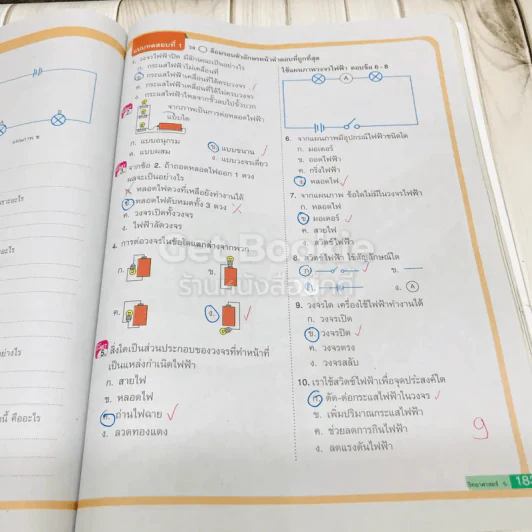 แบบทดสอบที่ 1 วง ◯ ล้อมรอบตัวอักษรหน้าคำตอบที่ถูกที่สุด
1. วงจรไฟฟ้าปิด มีลักษณะเป็นอย่างไร
ก. กระแสไฟฟ้าไม่เคลื่อนที่
ข. กระแสไฟฟ้าเคลื่อนที่ได้ครบวงจร
ค. กระแสไฟฟ้าเคลื่อนที่ได้ไม่ครบวงจร
ง. กระแสไฟฟ้าไหลจากขั้วลบไปขั้วบวก
2. จากภาพเป็นการต่อหลอดไฟฟ้า
แบบใด
ก. แบบอนุกรม ข. แบบขนาน
ค. แบบผสม ง. แบบวงจรเดี่ยว
3. จากข้อ 2. ถ้าถอดหลอดไฟออก 1 ดวง
ผลจะเป็นอย่างไร
ก. หลอดไฟดวงที่เหลือยังทำงานได้
ข. หลอดไฟดับหมดทั้ง 3 ดวง
ค. วงจรเปิดทั้งวงจร
ง. ไฟฟ้าลัดวงจร
4. การต่อวงจรในข้อใดแตกต่างจากพวก
ก. ข.
ค. ง.
5. สิ่งใดเป็นส่วนประกอบของวงจรที่ทำหน้าที่
เป็นแหล่งกำเนิดไฟฟ้า
ก. สายไฟ
ข. หลอดไฟ
ค. ถ่านไฟฉาย
ง. ลวดทองแดง
ใช้แผนภาพวงจรไฟฟ้า ตอบข้อ 6 - 8
A
6. จากแผนภาพมีอุปกรณ์ไฟฟ้าชนิดใด
ก. มอเตอร์
ข. ออดไฟฟ้า
ค. กริ่งไฟฟ้า
ง. หลอดไฟ
7. จากแผนภาพ ข้อใดไม่มีในวงจรไฟฟ้า
ก. หลอดไฟ
ข. มอเตอร์
ค. สายไฟ
ง. สวิตช์ไฟฟ้า
8. สวิตช์ไฟฟ้า ใช้สัญลักษณ์ใด
ก. ข.
ค. ง. A
9. วงจรใด เครื่องใช้ไฟฟ้าทำงานได้
ก. วงจรเปิด
ข. วงจรปิด
ค. วงจรตรง
ง. วงจรสลับ
10. เราใช้สวิตช์ไฟฟ้าเพื่อจุดประสงค์ใด
ก. ตัด-ต่อกระแสไฟฟ้าในวงจร
ข. เพิ่มปริมาณกระแสไฟฟ้า
ค. ช่วยลดการกินไฟฟ้า
ง. ลดแรงดันไฟฟ้า
9
วิทยาศาสตร์ 6
ภาพ ข
Get Bookie
ร้านหนังสือออที่